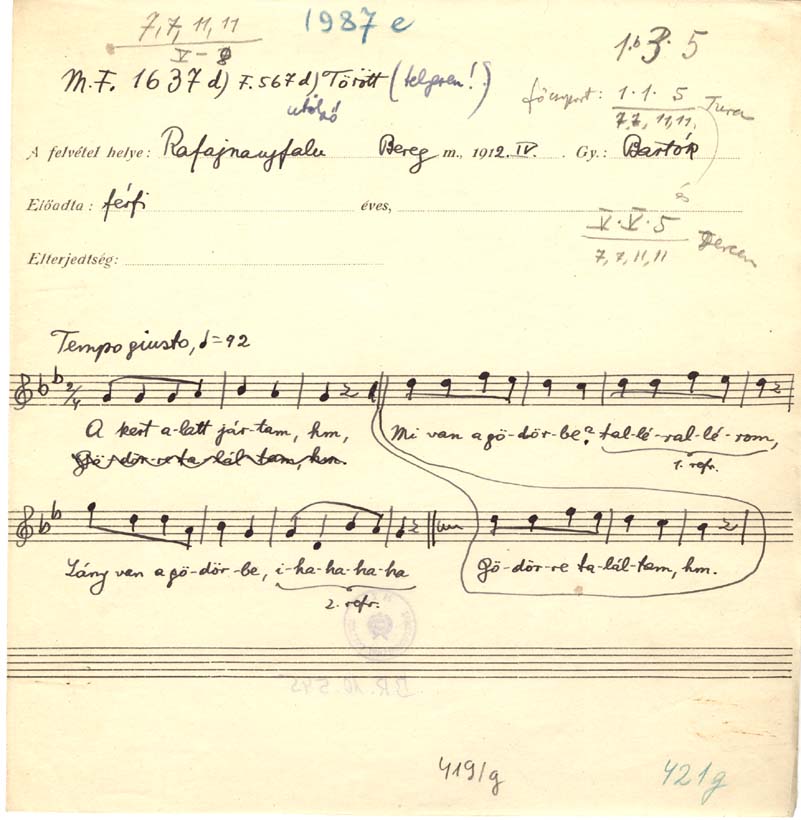 7, 7, 11, 11
V –
1987 e
1.b 3. 5
M.F. 1637 d) F. 567 d) Törött (teljesen!)
utolsó
főcsoport: 1. 1. 5
7, 7, 11, 11, Tura
A felvétel helye: Rafajnaujfalu Bereg m., 1912. IV. Gy.: Bartók
és
Előadta: férfi éves,
V. V. 5
7, 7, 11, 11
Elterjedtség:
Tempo giusto, ♩=92
2/4
A kert a-latt jár-tam, hm, Mi van a gö-dör-be? tal-lé-ral-lé-rom,
Gö-dör-re ta-lál-tam, hm.
1. refr.
Lány van a gö-dör-be, i-ha-ha-ha-ha Gö-dör-re ta-lál-tam, hm.
2. refr.
B.R. 10.545
419/g
421g